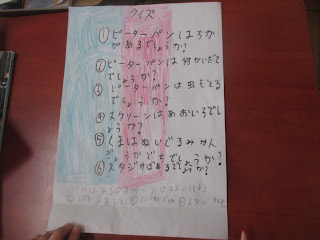 クイズ
① ピーターパンはろか
があるでしょうか?
② ピーターパンは何かいだて
でしょうか?
③ ピーターパンは虫をとる
でしょうか?
④ スクリーンはあおいろでし
ょうか?
⑤ くまはぬいぐるみかん
ぎょうかどちでしょうか?
⑥ スタジオはあるでしょうか?